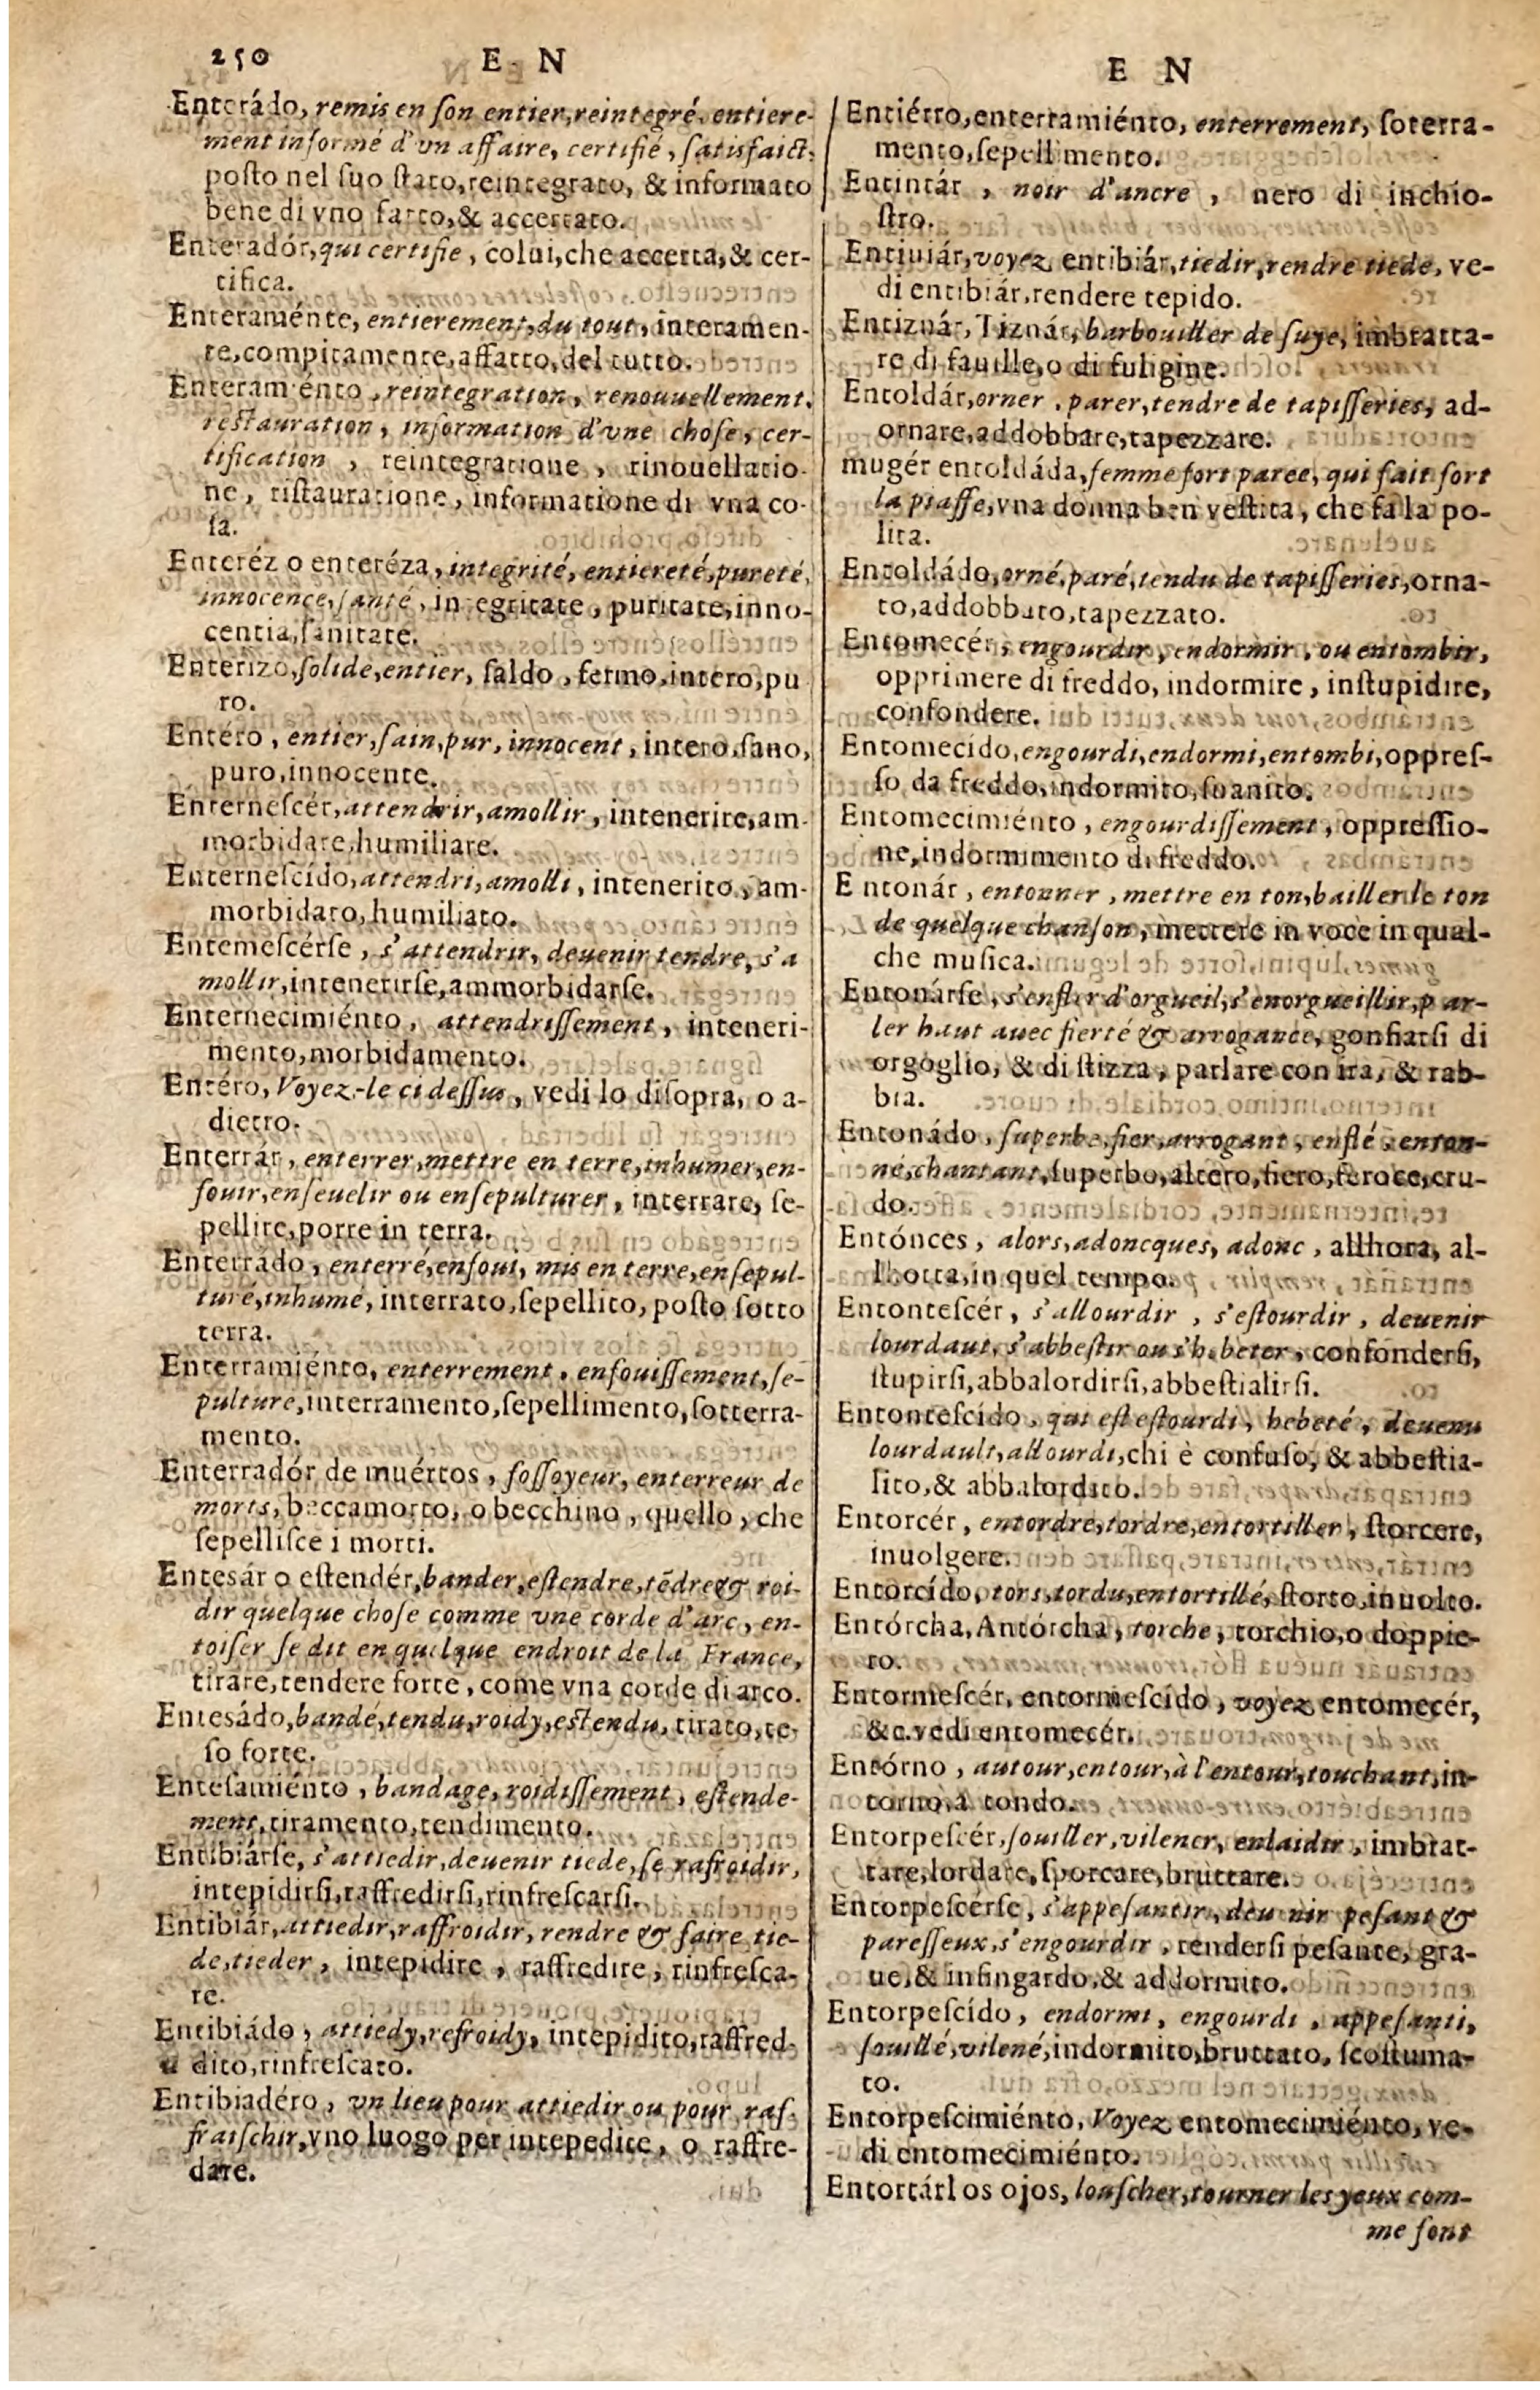 250 E N
Enterádo, remis en son entier, reintegré, entiere-
ment informé d'vn affaire, certifié, satisfaict,
posto nel suo stato, reintegrato, & informato
bene di vno fatto, & accertato.
Enteradór, qui certifie, colui, che accerta, & cer-
tifica.
Enteraménte, entierement, du tout, interamen-
te, compitamente, affatto, del tutto.
Enteramiénto, reintegration, renouuellement,
restauration, information d'vne chose, cer-
tification, reintegratione, rinouellatio-
ne, ristauratione, informatione di vna co-
sa.
Enteréz o enteréza, integrité, entiereté, pureté,
innocence, santé, integritate, puritate, inno-
centia, sanitate.
Enterizo, solide, entier, saldo, fermo, intero, pu
ro.
Entéro, entier, sain, pur, innocent, intero, sano,
puro, innocente.
Enternescér, attendrir, amollir, intenerire, am-
morbidare, humiliare.
Enternescído, attendri, amolli, intenerito, am-
morbidato, humiliato.
Entemescérse, s'attendrir, deuenir tendre, s'a
mollir, intenerirse, ammorbidarse.
Enternecimiénto, attendrissement, inteneri-
mento, morbidamento.
Entéro, Voyez-le ci dessus, vedi lo disopra, o a-
dietro.
Enterrár, enterrer, mettre en terre, inhumer, en-
souir, enseuelir ou ensepulturer, interrare, se-
pellire, porre in terra.
Enterrádo, enterré, ensoui, mis en terre, ensepul-
turé, inhumé, interrato, sepellito, posto sotto
terra.
Enterramiénto, enterrement, ensouissement, se-
pulture, interramento, sepellimento, sotterra-
mento.
Enterradór de muértos, fossoyeur, enterreur de
morts, beccamorto, o becchino, quello, che
sepellisce i morti.
Entesár o estendér, bander, estendre, tēdre & roi-
dir quelque chose comme vne corde d'arc, en-
toiser se dit en quelque endroit de la France,
tirare, tendere forte, come vna corde di arco.
Entesádo, bandé, tendu, roidy, estendu, tirato, te-
so forte.
Entesamiénto, bandage, roidissement, estende-
ment, tiramento, tendimento.
Entibiárse, s'attiedir, deuenir tiede, se rafroidir,
intepidirsi, raffredirsi, rinfrescarsi.
Entibiár, attiedir, raffroidir, rendre & faire tie-
de, tieder, intepidire, raffredire, rinfresca-
re.
Entibiádo, attiedy, refroidy, intepidito, raffred-
dito, rinfrescato.
Entibiadéro, vn lieu pour attiedir ou pour raf-
fraischir, vno luogo per intepedire, o raffre-
dare.
E N
Entiérro, enterramiénto, enterrement, soterra-
mento, sepellimento.
Entintár, noir d'ancre, nero di inchio-
stro.
Entiuiár, voyez entibiár, tiedir, rendre tiede, ve-
di entibiár, rendere tepido.
Entiznár, Tiznár, barbouiller de suye, imbratta-
re di fauille, o di fuligine.
Entoldár, orner, parer, tendre de tapisseries, ad-
ornare, addobbare, tapezzare.
mugér entoldáda, femme fort paree, qui fait fort
la piaffe, vna donna ben vestita, che fa la po-
lita.
Entoldádo, orné, paré, tendu de tapisseries, orna-
to, addobbato, tapezzato.
Entomecér, engourdir, endormir, ou entombir,
opprimere di freddo, indormire, instupidire,
confondere.
Entomecido, engourdi, endormi, entombi, oppres-
so da freddo, indormito, suanito.
Entomecimiénto, engourdissement, oppressio-
ne, indormimento di freddo.
Entonár, entonner, mettre en ton, bailler le ton
de quelque chanson, mettere in voce in qual-
che musica.
Entonárse, s'enfler d'orgueil, s'enorgueillir, par-
ler haut auec fierté & arrogance, gonfiarsi di
orgoglio, & di stizza, parlare con ira, & rab-
bia.
Entonádo, superbe, fier, arrogant, enflé, enton-
né, chantant, superbo, altero, fiero, feroce, cru-
do.
Entónces, alors, adoncques, adonc, allhora, al-
lhotta, in quel tempo.
Entontescér, s'allourdir, s'estourdir, deuenir
lourdaut, s'abbestir ou s'hebeter, confondersi,
stupirsi, abbalordirsi, abbestialirsi.
Entontescido, qui est estourdi, hebeté, deuenu
lourdault, allourdi, chi è confuso, & abbestia-
lito, & abbalordito.
Entorcér, entordre, tordre, entortiller, storcere,
inuolgere.
Entorcído, tors, tordu, entortillé, storto, inuolto.
Entórcha, Antórcha, torche, torchio, o doppie-
ro.
Entormescér, entormescído, voyez entomecér,
&c. vedi entomecér.
Entórno, autour, entour, à l'entour, touchant, in-
torno, a tondo.
Entorpescér, souiller, vilener, enlaidir, imbrat-
tare, lordare, sporcare, bruttare.
Entorpescérse, s'appesantir, deuenir pesant &
paresseux, s'engourdir, rendersi pesante, gra-
ue, & infingardo, & addormito.
Entorpescído, endormi, engourdi, appesanti,
souillé, vilené, indormito, bruttato, scostuma-
to.
Entorpescimiénto, Voyez entomecimiénto, ve-
di entomecimiénto.
Entortárl os ojos, louscher, tourner les yeux com-
me sont